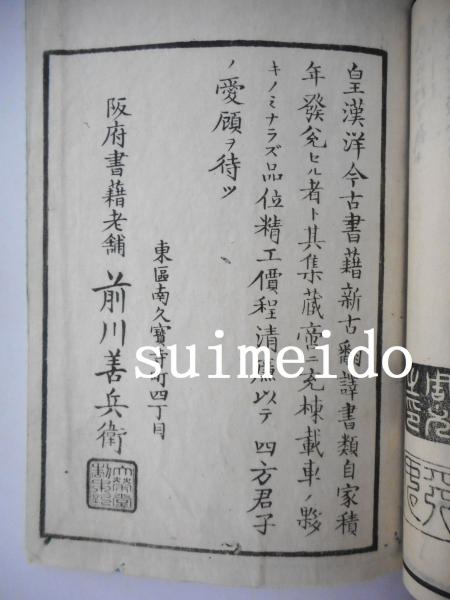 皇漢洋今古書藉新古翻譯書類自家積
年發兌セル者ト其集蔵啻ニ充棟載車ノ夥
キノミナラズ品位精工價程清廉以テ四方君子
ノ愛顧ヲ待ツ
東區南久寶寺町四丁目
阪府書藉老舗 前川善兵衛
suimeido